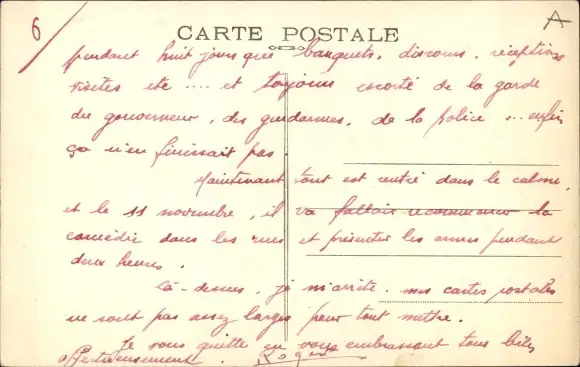 6
A
CARTE POSTALE
pendant huit jours que banquets, discours, réceptions
visites etc .... et toujours escorté de la garde
du gouverneur, des gendarmes, de la police ... enfin
ça n'en finissait pas.
Maintenant tout est rentré dans le calme,
et le 11 novembre, il va falloir recommencer la
comédie dans les rues et présenter les armes pendant
deux heures.
Là-dessus, je m'arrête. mes cartes postales
ne sont pas assez larges pour tout mettre.
Je vous quitte en vous embrassant tous bien
affectueusement. Roger